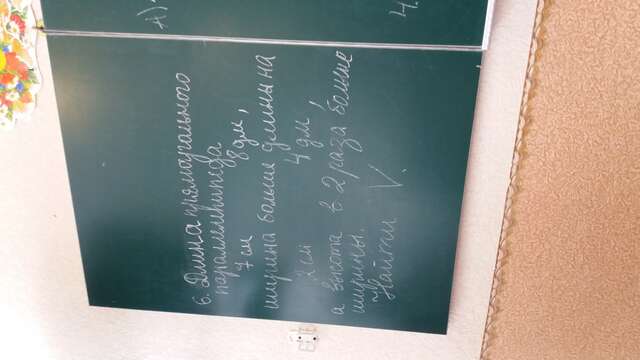 6. Длина прямоугольного
параллелепипеда
7 см 8 дм,
ширина больше длины на
2 см 4 дм,
а высота в 2 раза больше
ширины.
Найти V.
А)
4.